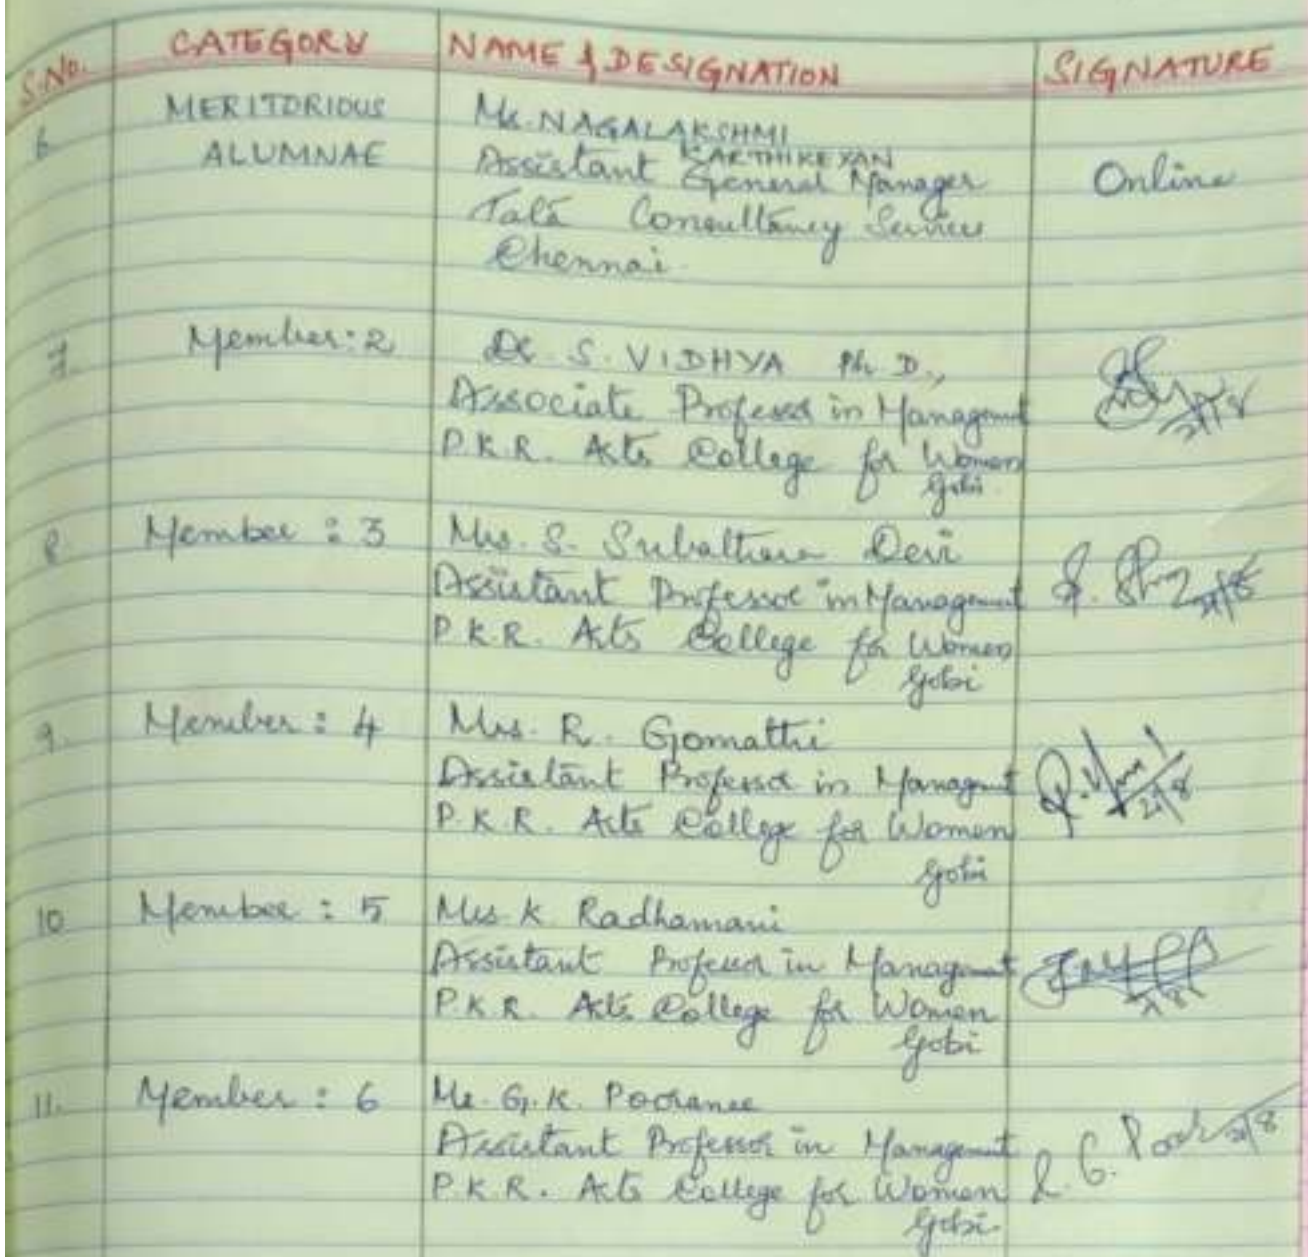 S.No. CATEGORY NAME & DESIGNATION SIGNATURE
6 MERITORIOUS Ms. NAGALAKSHMI
ALUMNAE KARTHIKEYAN
Assistant General Manager Online
Tata Consultancy Services
Chennai.
7. Member: 2 Dr. S. VIDHYA Ph. D.,
Associate Professor in Management
P.K.R. Arts College for Women
Gobi.
8. Member : 3 Mrs. S. Devi
Assistant Professor in Management
P.K.R. Arts College for Women
Gobi
9. Member : 4 Mrs. R. Gomathi
Assistant Professor in Management
P.K.R. Arts College for Women
Gobi
10 Member : 5 Mrs K. Radhamani
Assistant Professor in Management
P.K.R. Arts College for Women
Gobi
11. Member : 6 Ms. G.K. Pooranee
Assistant Professor in Management
P.K.R. Arts College for Women
Gobi.